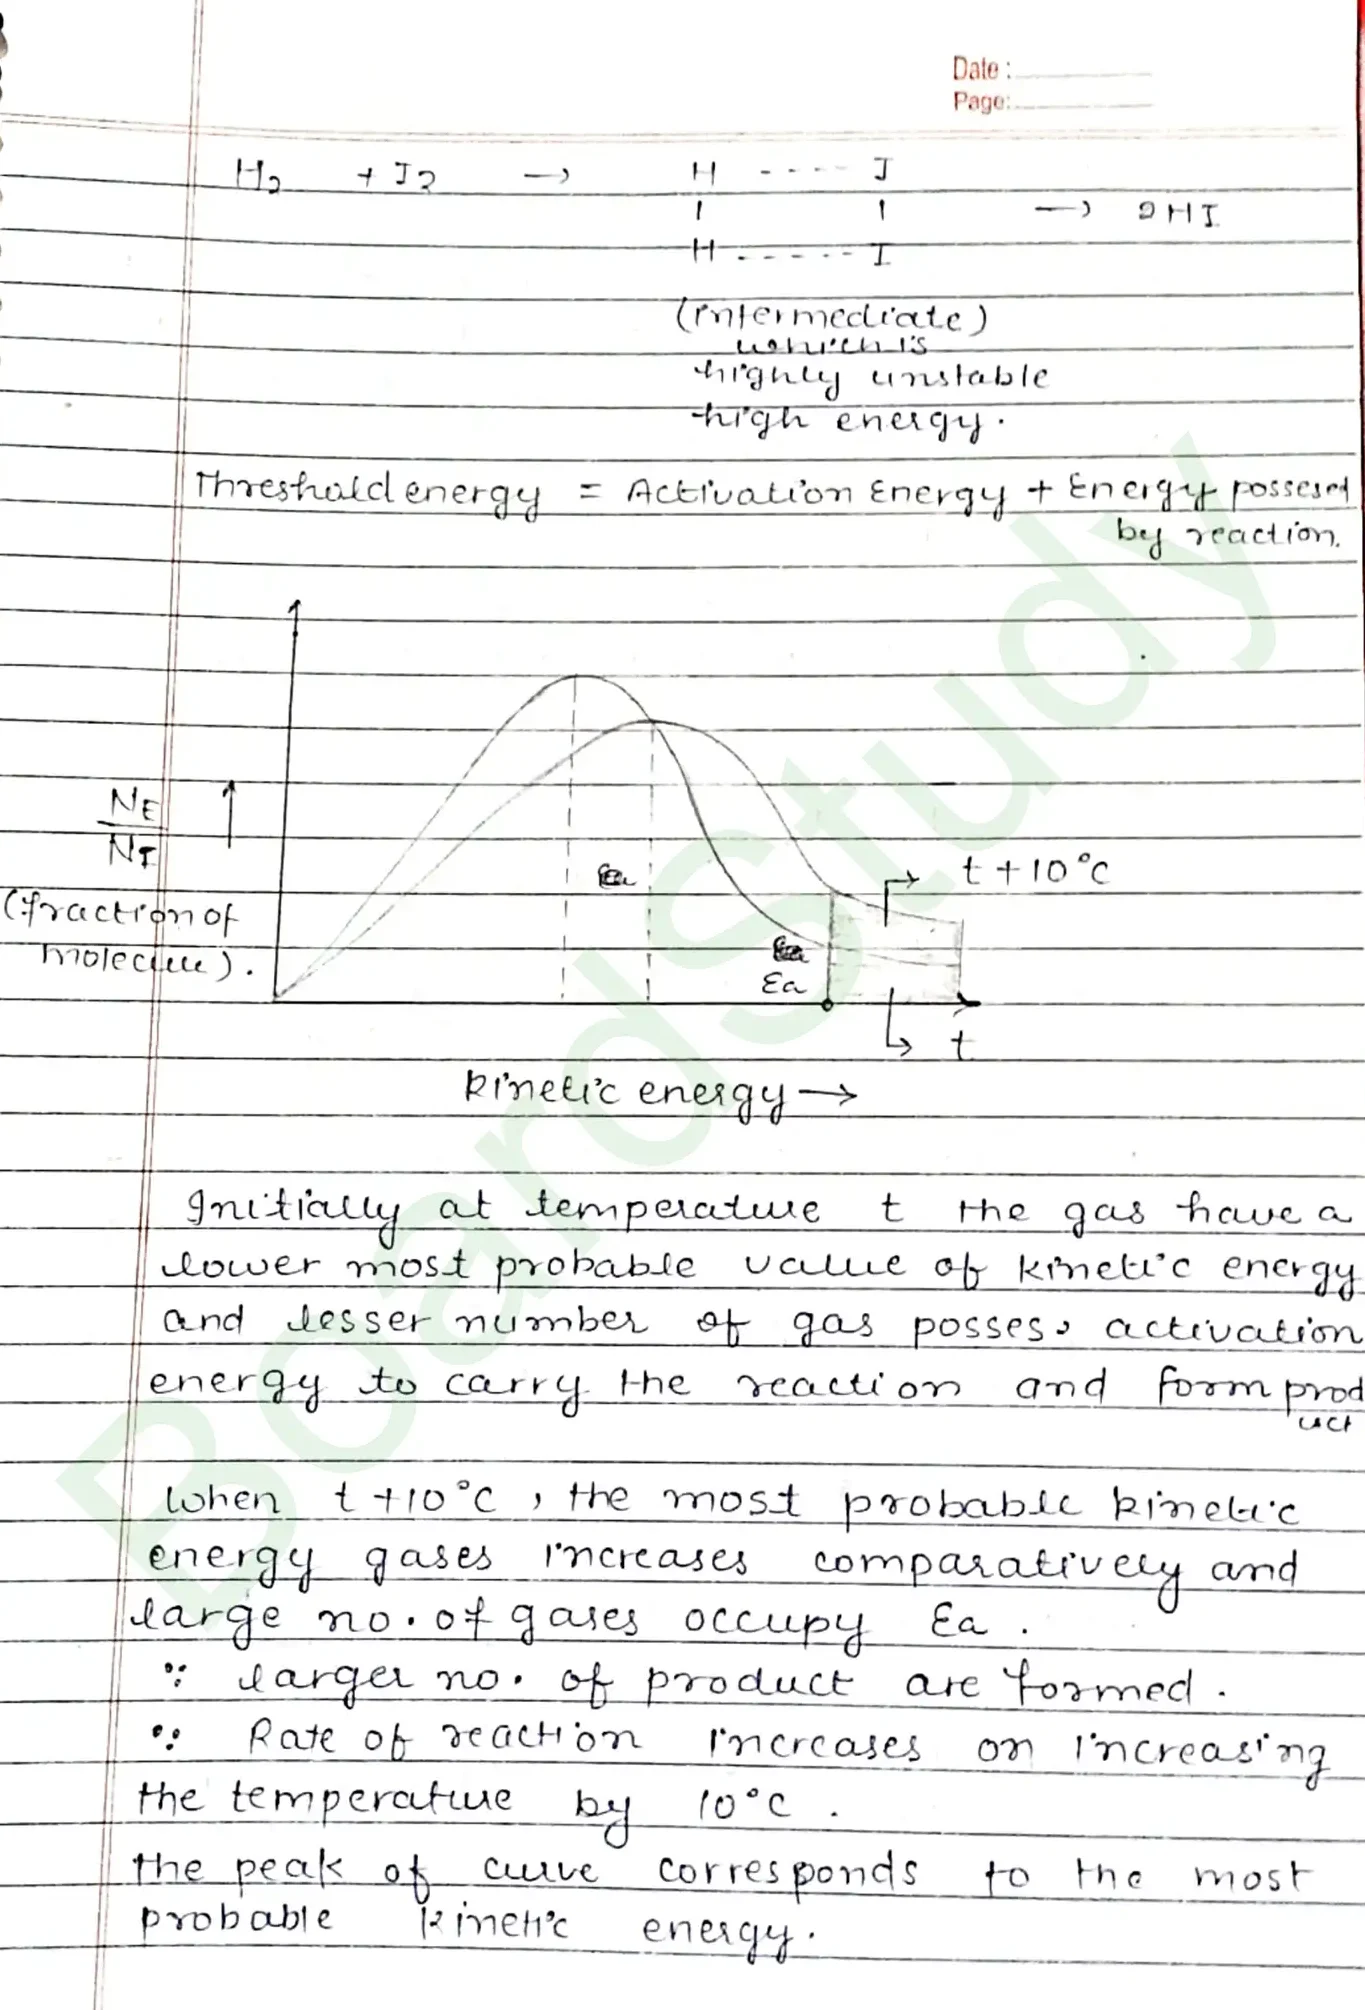 Date :
Page:
H2 + I2 → H ---- I
| | → 2HI
H ------ I
(intermediate)
which is
highly unstable
high energy.
Threshold energy = Activation Energy + Energy possesed
by reaction.
NE
NT
(fraction of
molecule).
t + 10°C
Ea
t
kinetic energy →
Initially at temperature t the gas have a
lower most probable value of kinetic energy
and lesser number of gas posses, activation
energy to carry the reaction and form prod
uct
When t +10°C , the most probable kinetic
energy gases increases comparatively and
large no. of gases occupy Ea .
∵ larger no. of product are formed .
∵ Rate of reaction increases on increasing
the temperature by 10°C .
the peak of curve corresponds to the most
probable kinetic energy.
BoardStudy